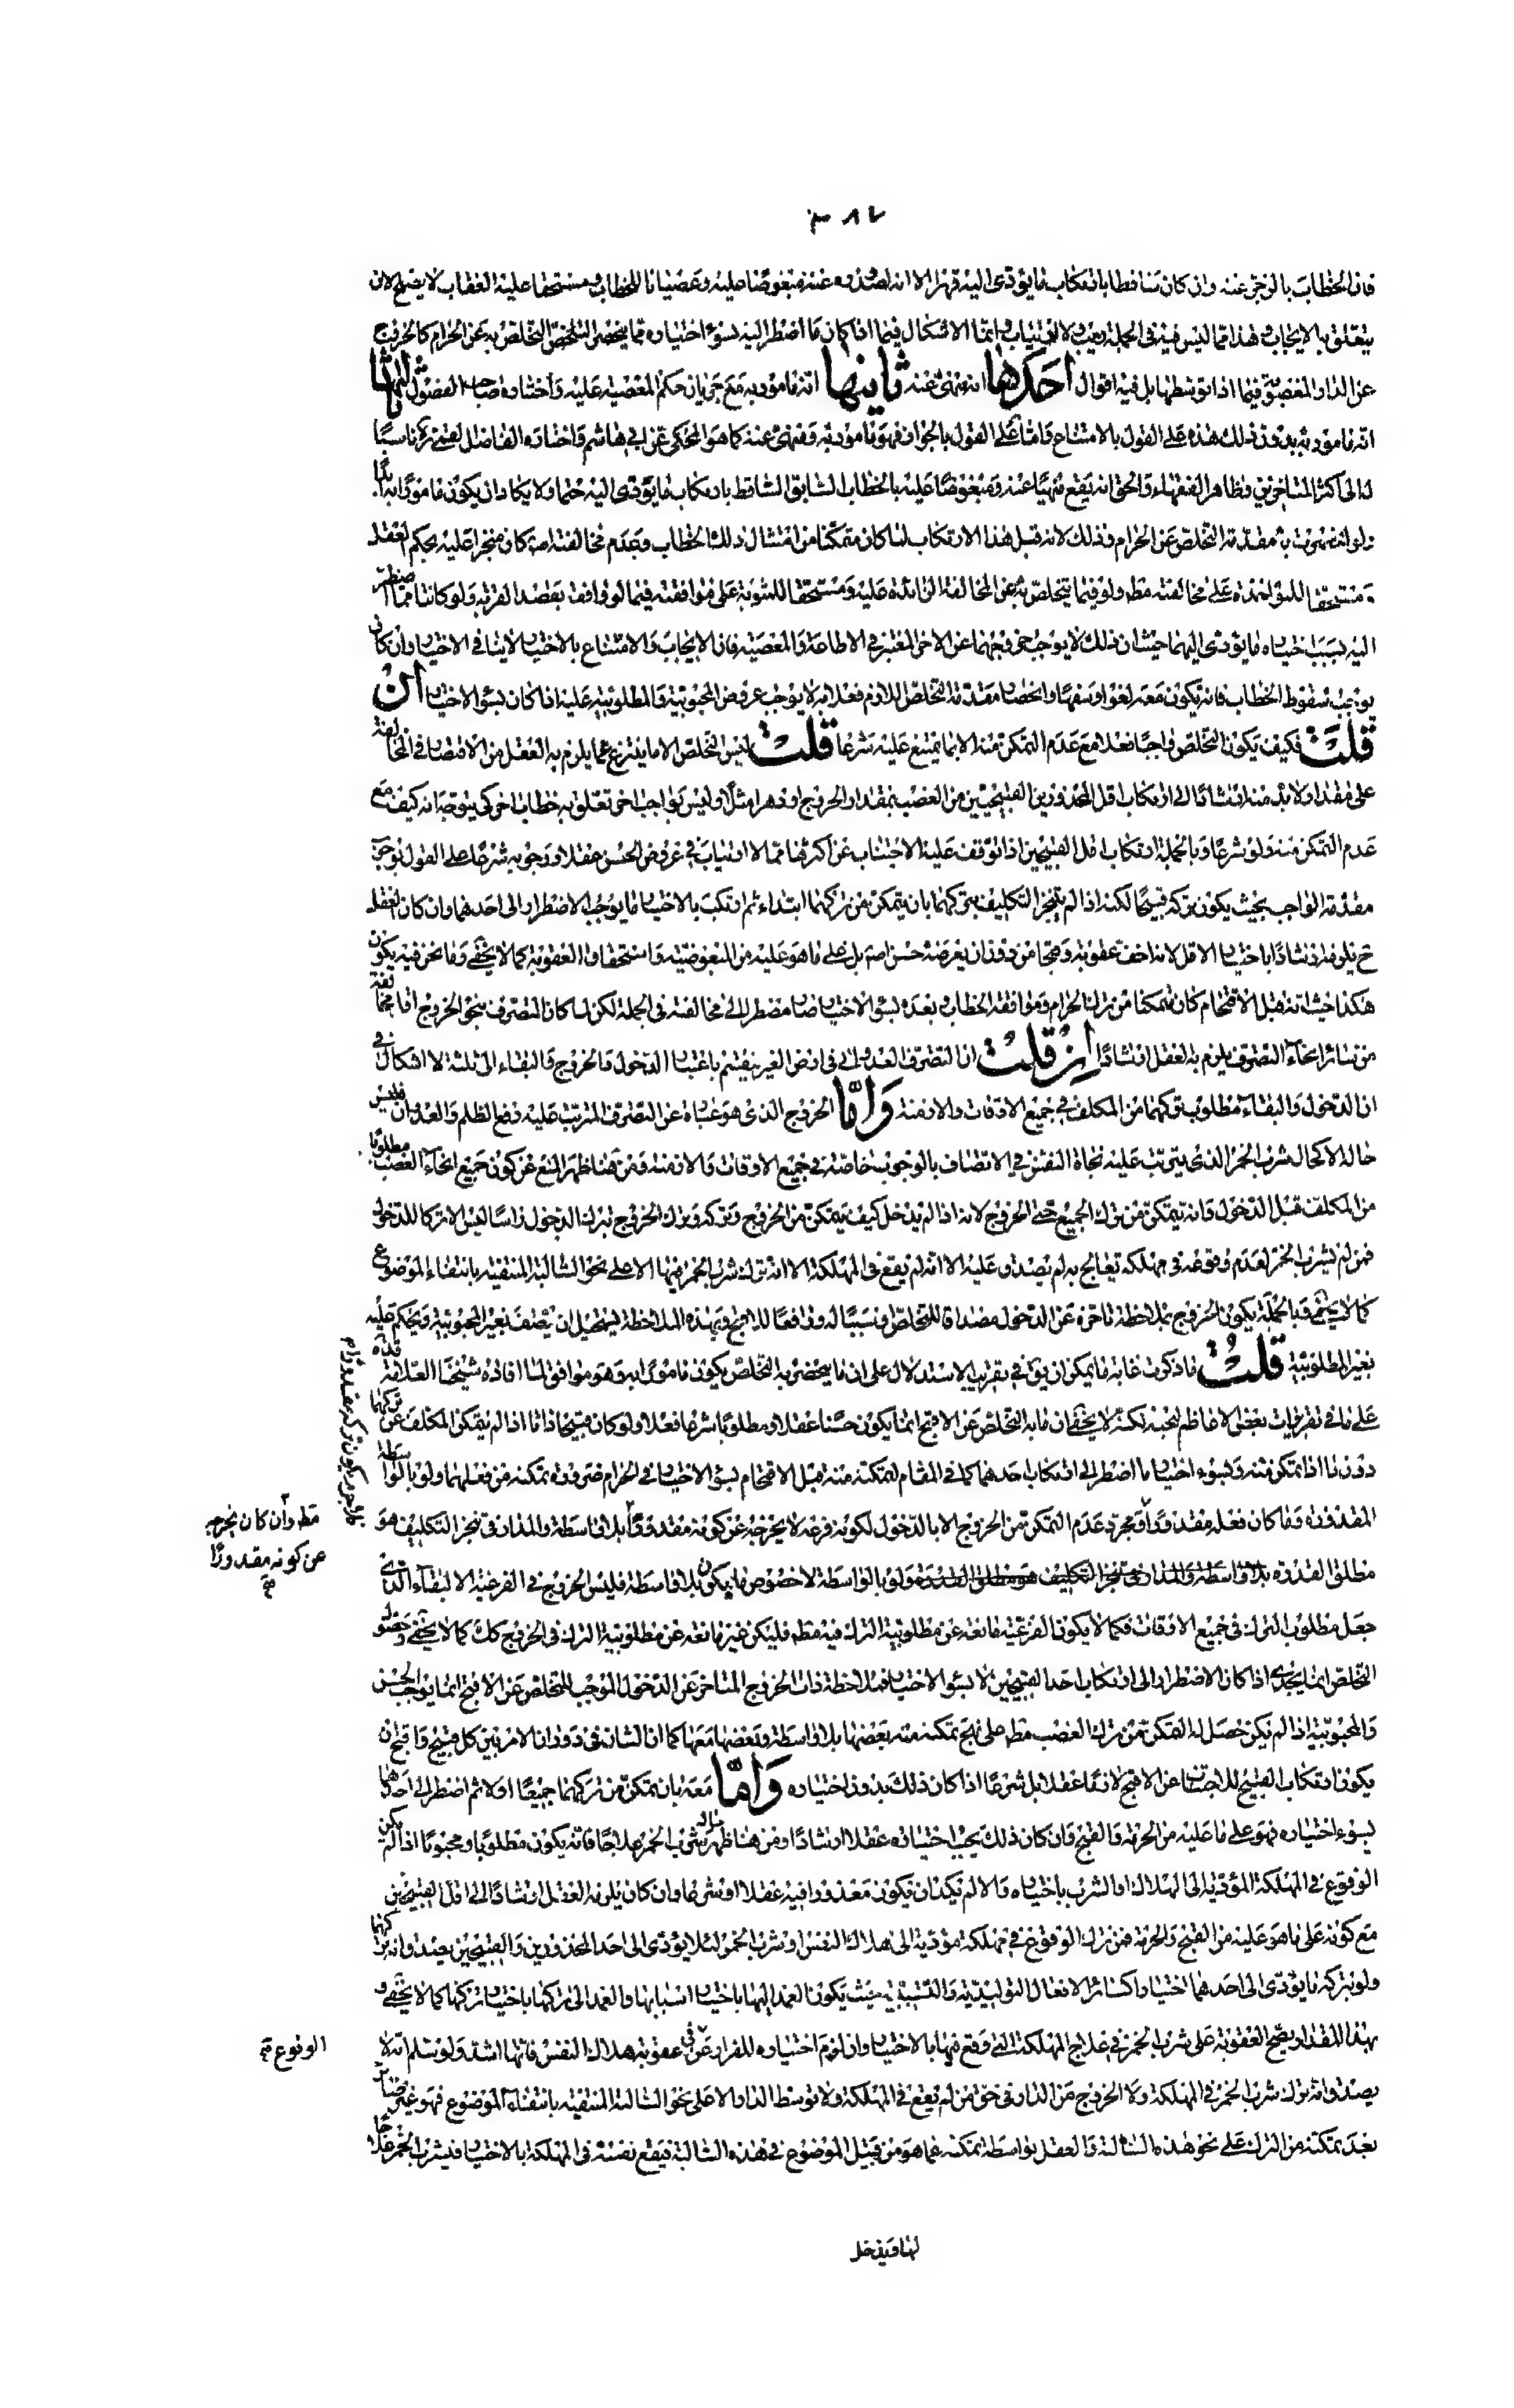 ٣٨٧
فان الخطاب بالزجر عنه وان كان ساقطا بارتكاب ما يؤدى اليه قهرا الا انه لصدوره عنه مبغوضا عليه وعصيانا للخطاب ومستحقا عليه العقاب لا يصلح لان
يتعلق به الايجاب وهذا مما ليس فيه فى الجملة ريب ولا ارتياب وانما الاشكال فيما اذا كان ما اضطر اليه بسوء اختياره مما ينحصر التخلص به عن الحرام كالخروج
عن الدار المغصوبة فيما اذا توسطها بل فيه اقوال احدها انه منهى عنه ثانيها انه مامور به مع جريان حكم المعصية عليه واختاره صاحب الفصول ثالثها
انه مامور به بدون ذلك هذه على القول بالامتناع واما على القول بالجواز فهو مامور به ومنهى عنه كما هو المحكى عن ابى هاشم واختاره الفاضل القمى ره ناسبا
له الى اكثر المتاخرين وظاهر الفقهاء والحق انه يقع منهيا عنه ومبغوضا عليه بالخطاب السابق الساقط بارتكاب ما يؤدى اليه حتما ولا يكاد ان يكون مامورا به ابدا
ولو انحصرت به مقدمة التخلص عن الحرام وذلك لانه قبل هذا الارتكاب لما كان متمكنا من امتثال ذلك الخطاب وعدم مخالفته اصلا كان منجزا عليه بحكم العقل
ومستحقا للمؤاخذة على مخالفته مطلقا ولو فيما يتخلص به عن المخالفة الزائدة عليه ومستحقا للمثوبة على موافقته فيما لو وافقه بقصد القربة ولو كانتا مما اضطر
اليه بسبب اختياره ما يؤدى اليهما حيث ان ذلك لا يوجب خروجهما عن الاختيار المعتبر فى الاطاعة والمعصية فان الايجاب والامتناع بالاختيار لا ينافى الاختيار وان كان
يوجب سقوط الخطاب فانه يكون معه لغوا وسفها وانحصار مقدمة التخلص اللازم فعلا به لا يوجب عروض المحبوبية والمطلوبية عليه اذا كان بسوء الاختيار ان
قلت فكيف يكون التخلص واجبا فعلا مع عدم التمكن منه الا بما يمتنع عليه شرعا قلت ليس التخلص الا ما ينتزع عما يلزم به العقل من الاقتصار فى المخالفة
على مقدار لا بد منه ارشادا الى ارتكاب اقل المحذورين القبيحين من الغصب بمقدار الخروج او دهرا مثلا وليس بواجب اخر تعلق به خطاب اخر كى يتوجه انه كيف مع
عدم التمكن منه ولو شرعا وبالجملة ارتكاب اقل القبيحين اذا توقف عليه الاجتناب عن اكثرهما مما لا ارتياب فى عروض الحسن عقلا ووجوبه شرعا على القول بوجوب
مقدمة الواجب بحيث يكون تركه قبيحا لكنه اذا لم يتنجز التكليف بتركهما بان يتمكن من تركهما ابتداء ثم ارتكب بالاختيار ما يوجب الاضطرار الى احدهما وان كان العقل
ح يلزمه ارشادا باختيار الاقل لانه اخف عقوبة وقبحا من دون ان يعرضه حسن اصلا بل على ما هو عليه من المبغوضية واستحقاق العقوبة كما لا يخفى وما نحن فيه يكون
هكذا حيث انه قبل الاقتحام كان متمكنا من ترك الحرام وموافقة الخطاب وبعده بسوء الاختيار صار مضطرا الى مخالفته فى الجملة لكن لما كان التصرف بنحو الخروج اقل مخالفة
من سائر انحاء التصرف يلزم به العقل ارشادا ان قلت ان التصرف العدوانى فى ارض الغير ينقسم باعتبار الدخول والخروج والبقاء الى ثلثة لا اشكال فى
ان الدخول والبقاء مطلوب تركهما من المكلف فى جميع الاوقات والازمنة واما الخروج الذى هو عبارة عن التصرف المترتب عليه رفع الظلم والعدوان فليس
حاله الا كحال شرب الخمر الذى يترتب عليه نجاة النفس فى الاتصاف بالوجوب خاصة فى جميع الاوقات والازمنة ومن هنا ظهر المنع عن كون جميع انحاء الغصب مطلوبا
من المكلف قبل الدخول فانه يتمكن من ترك الجميع حتى الخروج لانه اذا لم يدخل كيف يتمكن من الخروج وتركه وترك الخروج بترك الدخول راسا ليس الا تركا للدخول
فمن لم يشرب الخمر لعدم وقوعه فى مهلكة تعالج به لم يصدق عليه الا انه لم يقع فى المهلكة الا انه ترك شرب الخمر فيها الا على نحو السالبة المنتفية بانتفاء الموضوع
كما لا يخفى وبالجملة يكون الخروج بملاحظة تاخره عن الدخول مصداقا للتخلص ومسببا له ورافعا للاقبح وبهذه الملاحظة يستحيل ان يتصف بغير المحبوبية ويحكم عليه
بغير المطلوبية قلت ما ذكرت غاية ما يمكن ان يق فى تقريب الاستدلال على ان ما ينحصر به التخلص يكون مامورا به وهو موافق لما افاده شيخنا العلامة قده
على ما فى تقريرات بعض الاعاظم لبحثه لكنه لا يخفى ان ما به التخلص عن الاقبح انما يكون حسنا عقلا ومطلوبا شرعا فعلا ولو كان قبيحا ذاتا اذا لم يتمكن المكلف عن تركهما
دون ما اذا تمكن منه وبسوء اختياره اضطر الى ارتكاب احدهما كما فى المقام لتمكنه منه قبل الاقتحام بسوء الاختيار فى الحرام ضرورة تمكنه من فعلهما ولو بالواسطة
المقدورة وما كان فعله مقدورا ومجرد عدم التمكن من الخروج الا بالدخول لكونه فرعه لا يخرجه عن كونه مقدورا بلا واسطة والمدار فى تنجز التكليف هو
مطلق القدرة ولو بالواسطة لا خصوص ما يكون بلا واسطة فليس الخروج فى الفرعية الا لبقاء الذى
جعل مطلوب الترك فى جميع الاوقات فكما لا يكون الفرعية مانعة عن مطلوبية الترك فيه مطلقا فليكن غير مانعة عن مطلوبية الترك فى الخروج كك كما لا يخفى وحصول
التخلص انما يجدى اذا كان الاضطرار الى ارتكاب احد القبيحين لا بسوء الاختيار فملاحظة ذات الخروج المتاخر عن الدخول الموجب للتخلص عن الاقبح انما يوجب الحسن
والمحبوبية اذا لم يكن حصل له التمكن من ترك الغصب مطلقا على نهج تمكنه منه بعضها بلا واسطة وبعضها معها كما ان الشان فى دوران الامر بين كل قبيح واقبح ان
يكون ارتكاب القبيح للاجتناب عن الاقبح لازما عقلا بل شرعا اذا كان ذلك بدون اختياره واما معه بان يتمكن من تركهما جميعا اولا ثم اضطر الى احدهما
بسوء اختياره فهو على ما عليه من الحرمة والقبح وان كان ذلك يجب اختياره عقلا ارشادا ومن هنا ظهر حال شرب الخمر علاجا فانه يكون مطلوبا ومحبوبا اذا لم يكن
الوقوع فى المهلكة المؤدية الى الهلاك او الشرب باختياره والا لم يكد ان يكون معذورا فيه عقلا او شرعا وان كان يلزمه العقل ارشادا الى اقل القبيحين
مع كونه على ما هو عليه من القبح والحرمة فمن ترك الوقوع فى مهلكة مؤدية الى هلاك النفس او شرب الخمر لئلا يؤدى الى احد المحذورين والقبيحين يصدق انه تركهما
ولو بتركه ما يؤدى الى احدهما اختيارا كسائر الافعال التوليدية والتسبيبية حيث يكون العمد اليها باختيار اسبابها والعمد الى تركها باختيار تركها كما لا يخفى و
بهذا المقدار يصح العقوبة على شرب الخمر فى علاج المهلكة التى وقع فيها بالاختيار وان لزم اختياره للفرار عن عقوبة هلاك النفس فانها اشد ولو سلم انه لا
يصدق انه ترك شرب الخمر فى المهلكة ولا الخروج من الدار فى حق من لم يقع فى المهلكة ولا توسط الدار الا على نحو السالبة المنتفية بانتفاء الموضوع فهو غير ضائر
بعد تمكنه من الترك على نحو هذه السالبة والعقل بواسطة تمكنه عما هو من قبيل الموضوع فى هذه السالبة فيقع نفسه فى المهلكة بالاختيار فيشرب الخمر علاجا
مطلقا وان كان يخرجه
عن كونه مقدورا
صح
الوقوع صح
لها ويدخل